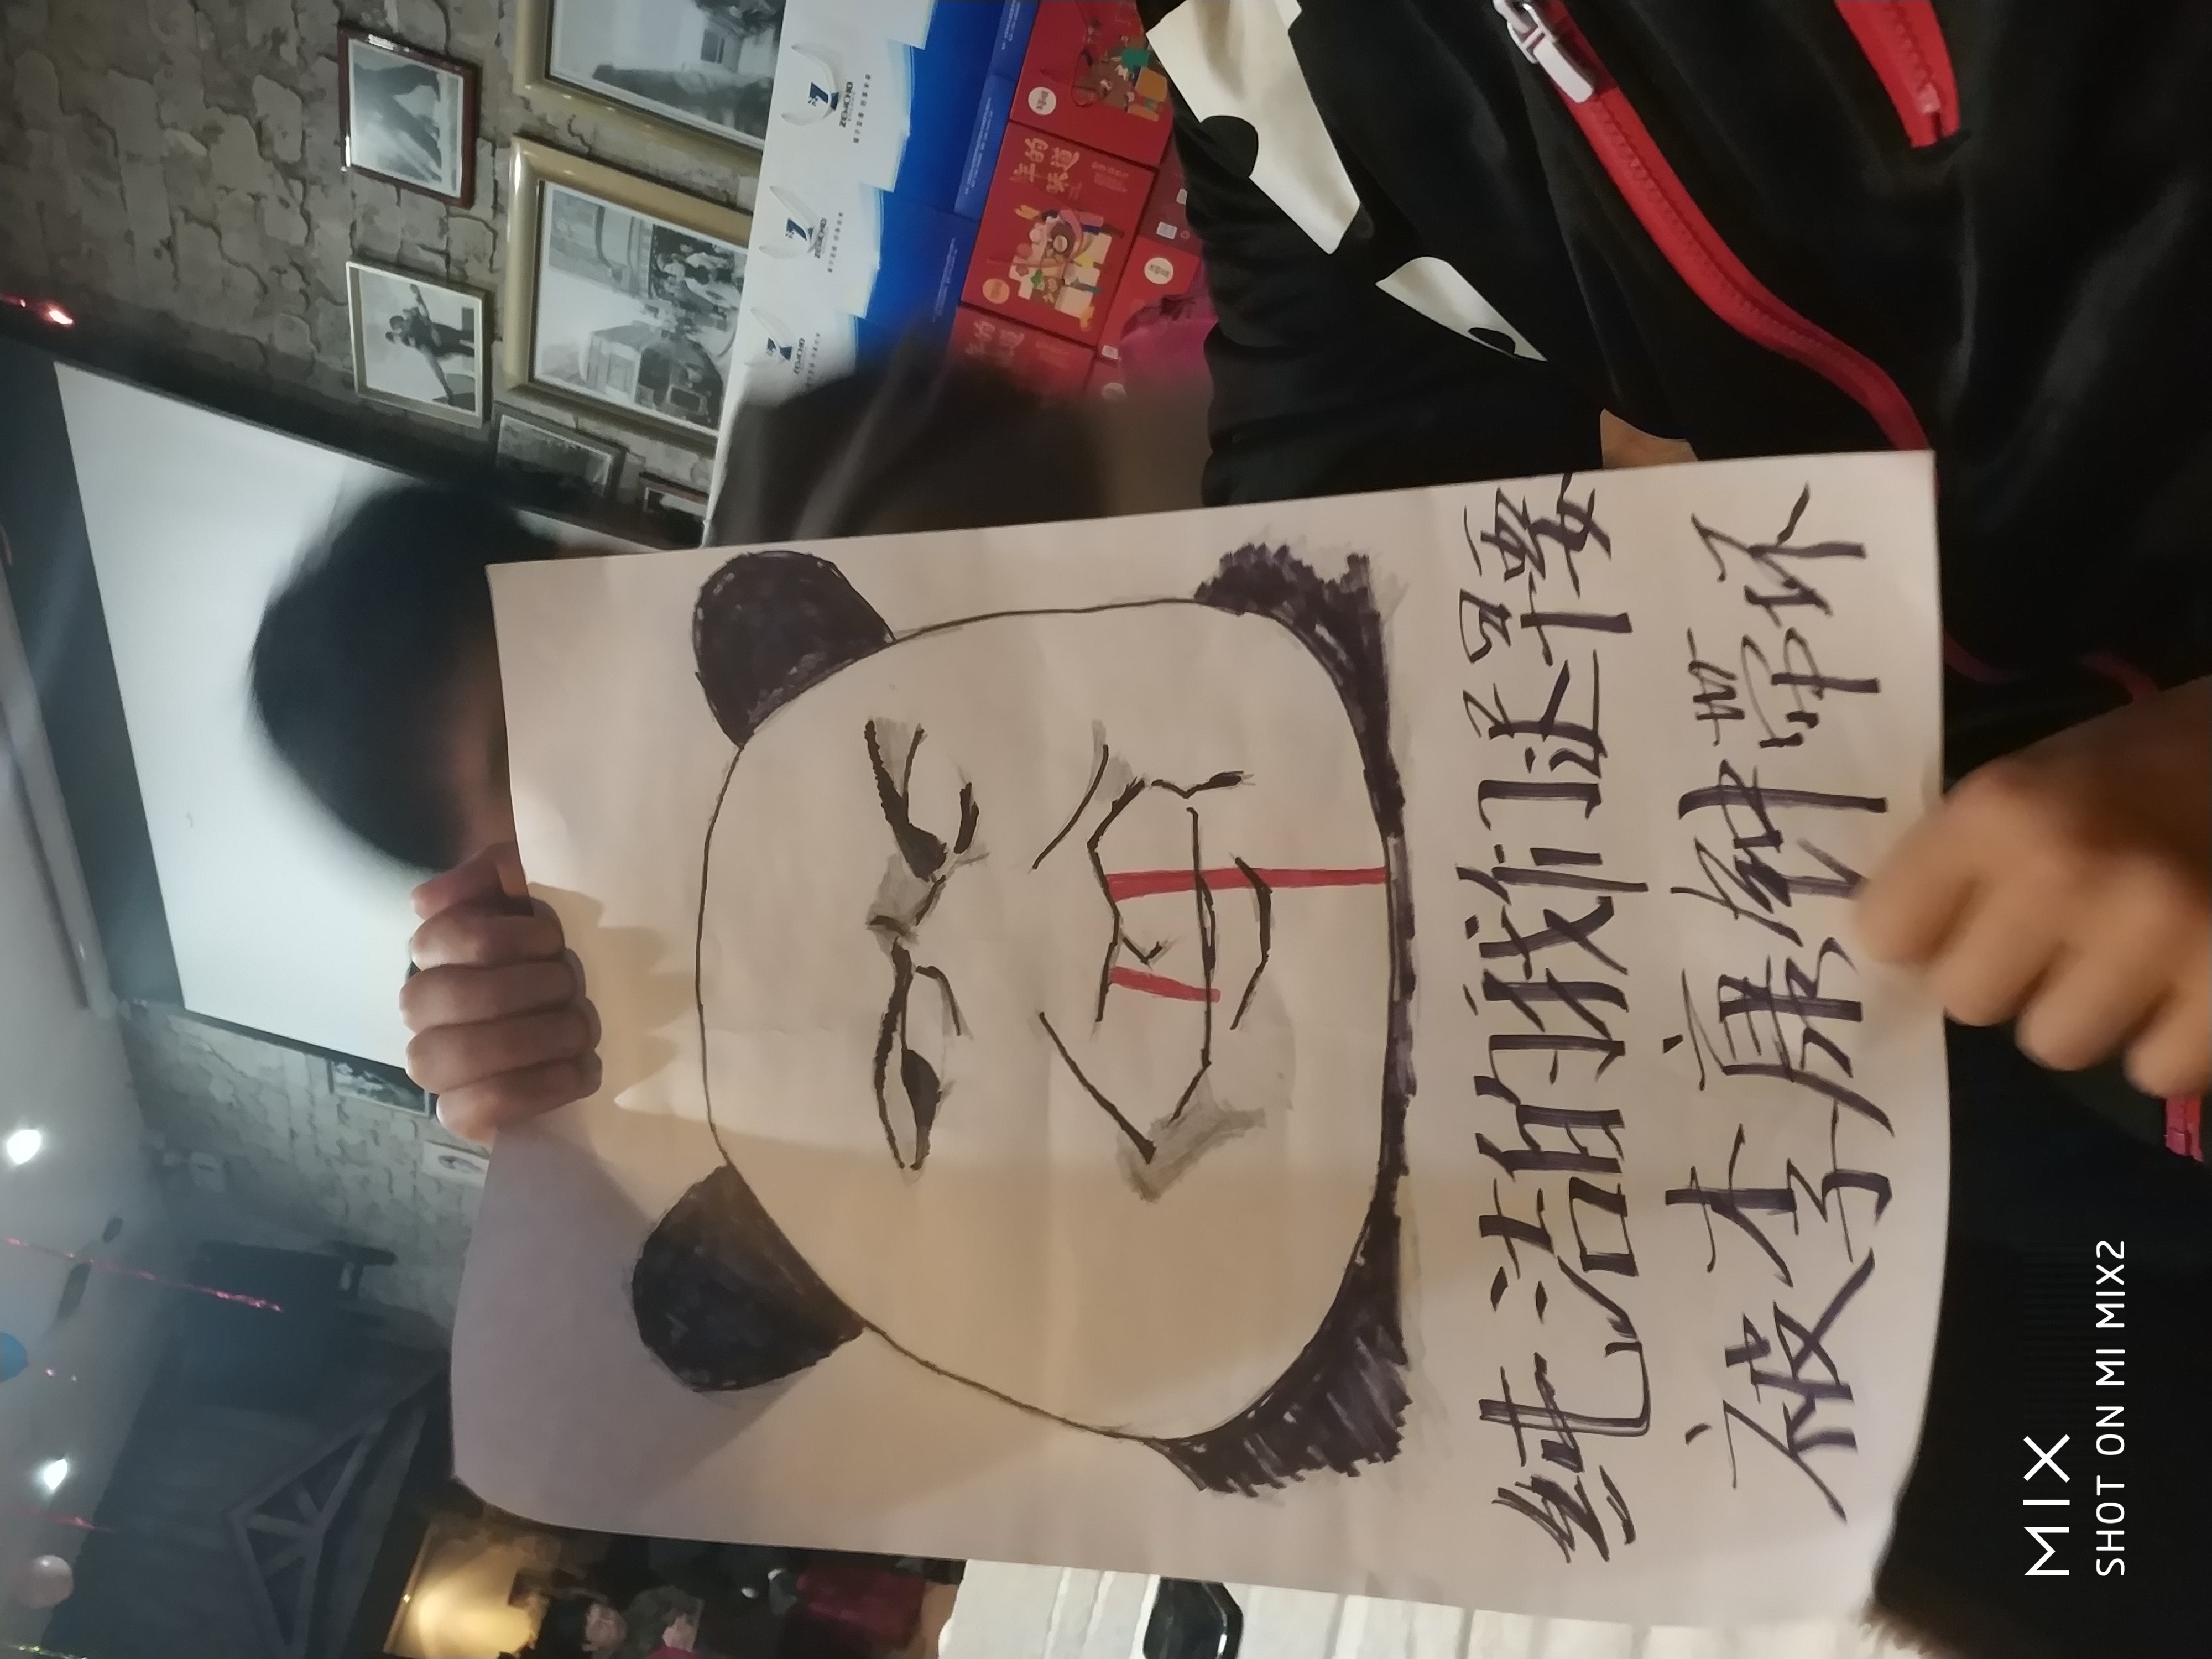 纯洁的我们迟早要
被李康钟带坏
ZEMCHO
ZEMCHO
ZEMCHO
年的
味道
年的
味道
MIX
SHOT ON MI MIX2